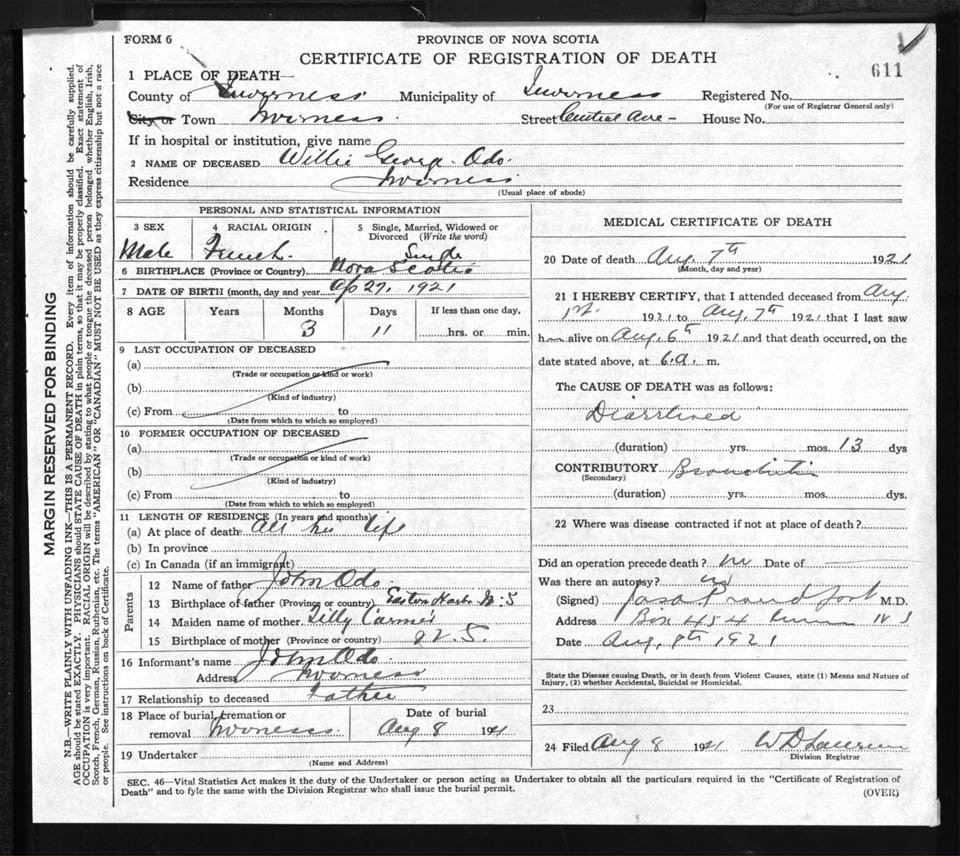 FORM 6
PROVINCE OF NOVA SCOTIA
CERTIFICATE OF REGISTRATION OF DEATH
611
1 PLACE OF DEATH—
County of Inverness Municipality of Inverness Registered No.
(For use of Registrar General only)
City or Town Inverness. Street Central Ave - House No.
If in hospital or institution, give name
2 NAME OF DECEASED Willie George Odo.
Residence Inverness
(Usual place of abode)
PERSONAL AND STATISTICAL INFORMATION
3 SEX 4 RACIAL ORIGIN 5 Single, Married, Widowed or Divorced (Write the word)
Male French. Single
6 BIRTHPLACE (Province or Country) Nova Scotia
7 DATE OF BIRTH (month, day and year) Ap 27, 1921
8 AGE Years Months Days If less than one day,
3 11 hrs. or min.
9 LAST OCCUPATION OF DECEASED
(a)
(Trade or occupation or kind or work)
(b)
(Kind of industry)
(c) From to
(Date from which to which so employed)
10 FORMER OCCUPATION OF DECEASED
(a)
(Trade or occupation or kind of work)
(b)
(Kind of industry)
(c) From to
(Date from which to which so employed)
11 LENGTH OF RESIDENCE (In years and months)
(a) At place of death all his life
(b) In province
(c) In Canada (if an immigrant)
Parents
12 Name of father John Odo.
13 Birthplace of father (Province or country) Harbr N.S
14 Maiden name of mother Lilly
15 Birthplace of mother (Province or country) N.S.
16 Informant's name John Odo.
Address Inverness
17 Relationship to deceased Father
18 Place of burial, cremation or removal Inverness. Date of burial Aug 8 1921
19 Undertaker
(Name and Address)
MEDICAL CERTIFICATE OF DEATH
20 Date of death Aug 7th 1921
(Month, day and year)
21 I HEREBY CERTIFY, that I attended deceased from Aug
1st. 1921 to Aug. 7th 1921 that I last saw
him alive on Aug. 6th 1921 and that death occurred, on the
date stated above, at 6.a. m.
The CAUSE OF DEATH was as follows:
Diarrhoea
(duration) yrs. mos. 13 dys
CONTRIBUTORY Bronchitis
(Secondary)
(duration) yrs. mos. dys.
22 Where was disease contracted if not at place of death?
Did an operation precede death? no Date of
Was there an autopsy? no
(Signed) M.D.
Address Box 454 N S
Date Aug. 8th 1921
State the Disease causing Death, or in death from Violent Causes, state (1) Means and Nature of
Injury, (2) whether Accidental, Suicidal or Homicidal.
23
24 Filed Aug 8 1921 W D
Division Registrar
SEC. 46—Vital Statistics Act makes it the duty of the Undertaker or person acting as Undertaker to obtain all the particulars required in the "Certificate of Registration of
Death" and to fyle the same with the Division Registrar who shall issue the burial permit.
(OVER)
MARGIN RESERVED FOR BINDING
N.B.—WRITE PLAINLY WITH UNFADING INK—THIS IS A PERMANENT RECORD. Every item of information should be carefully supplied.
AGE should be stated EXACTLY. PHYSICIANS should STATE CAUSE OF DEATH in plain terms, so that it may be properly classified. Exact statement of
OCCUPATION is very important. RACIAL ORIGIN will be described by stating to what people or tongue the deceased person belonged whether English, Irish,
Scotch, French, German, Russian, Ruthenian, etc. The terms "AMERICAN" OR "CANADIAN" MUST NOT BE USED as they express citizenship but not a race
or people. See instructions on back of Certificate.